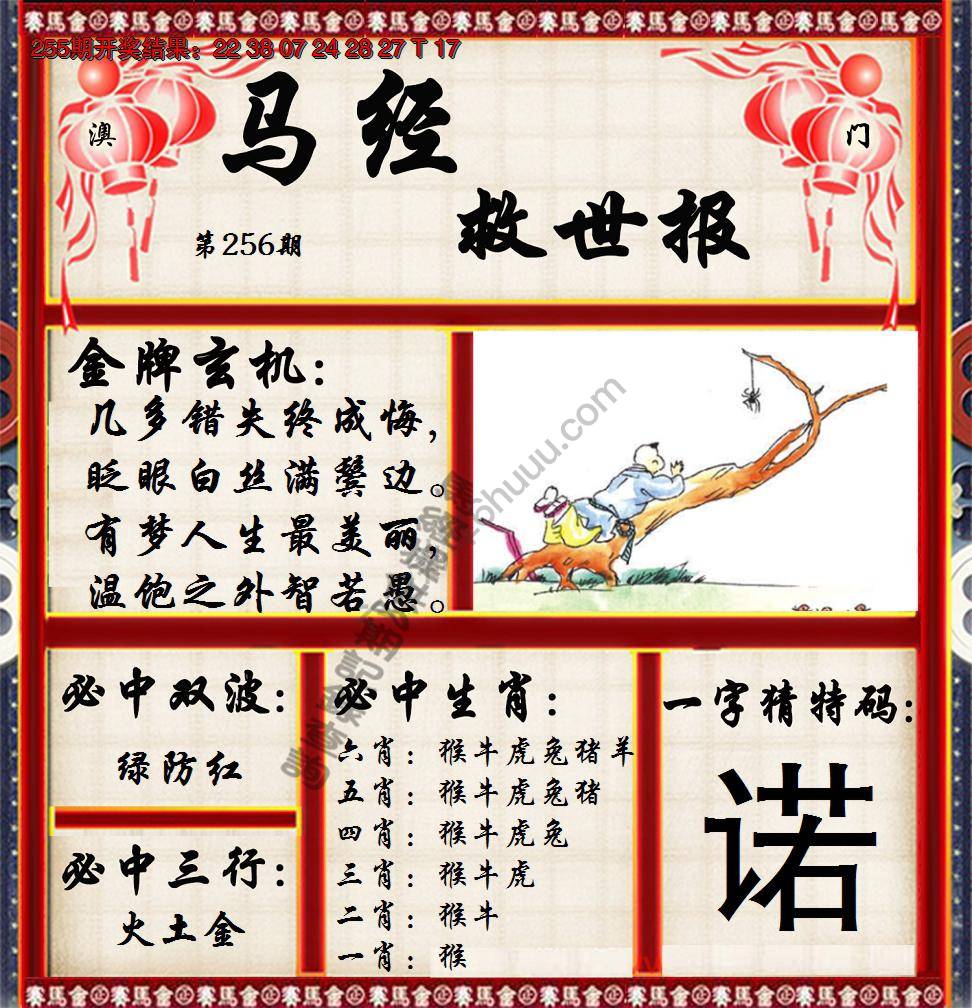 255期开奖结果：22 38 07 24 28 27 T 17
澳
门
马经
救世报
第256期
金牌玄机：
几多错失终成悔，
眨眼白丝满鬓边。
有梦人生最美丽，
温饱之外智若愚。
必中双波：
绿防红
必中三行：
火土金
必中生肖：
六肖：猴牛虎兔猪羊
五肖：猴牛虎兔猪
四肖：猴牛虎兔
三肖：猴牛虎
二肖：猴牛
一肖：猴
一字猜特码：
诺